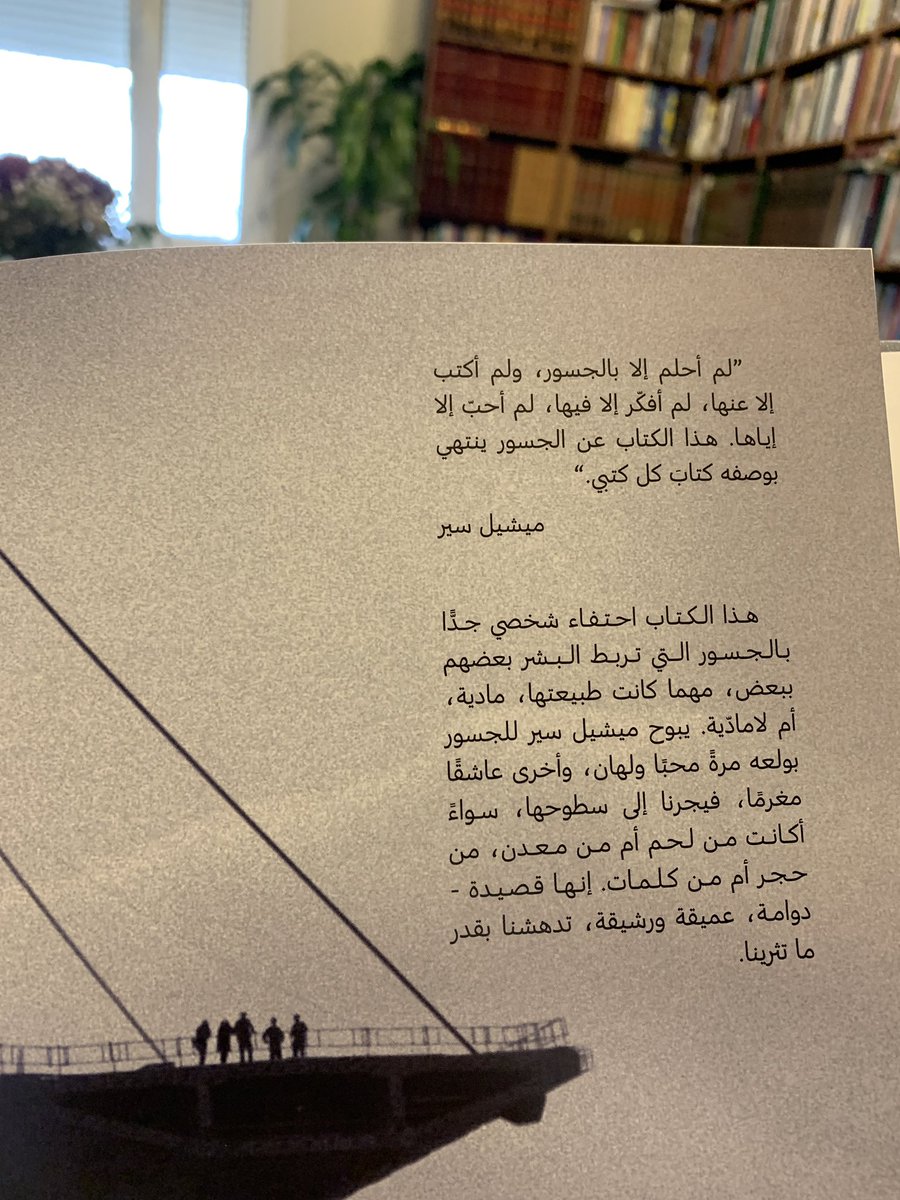 ”لم أحلم إلا بالجسور، ولم أكتب
إلا عنها، لم أفكّر إلا فيها، لم أحبّ إلا
إياها. هذا الكتاب عن الجسور ينتهي
بوصفه كتابَ كل كتبي.“
ميشيل سير
هذا الكتاب احتفاء شخصي جدًّا
بالجسور التي تربط البشر بعضهم
ببعض، مهما كانت طبيعتها، مادية،
أم لامادّية. يبوح ميشيل سير للجسور
بولعه مرةً محبًا ولهان، وأخرى عاشقًا
مغرمًا، فيجرنا إلى سطوحها، سواءً
أكانت من لحم أم من معدن، من
حجر أم من كلمات. إنها قصيدة -
دوامة، عميقة ورشيقة، تدهشنا بقدر
ما تثرينا.